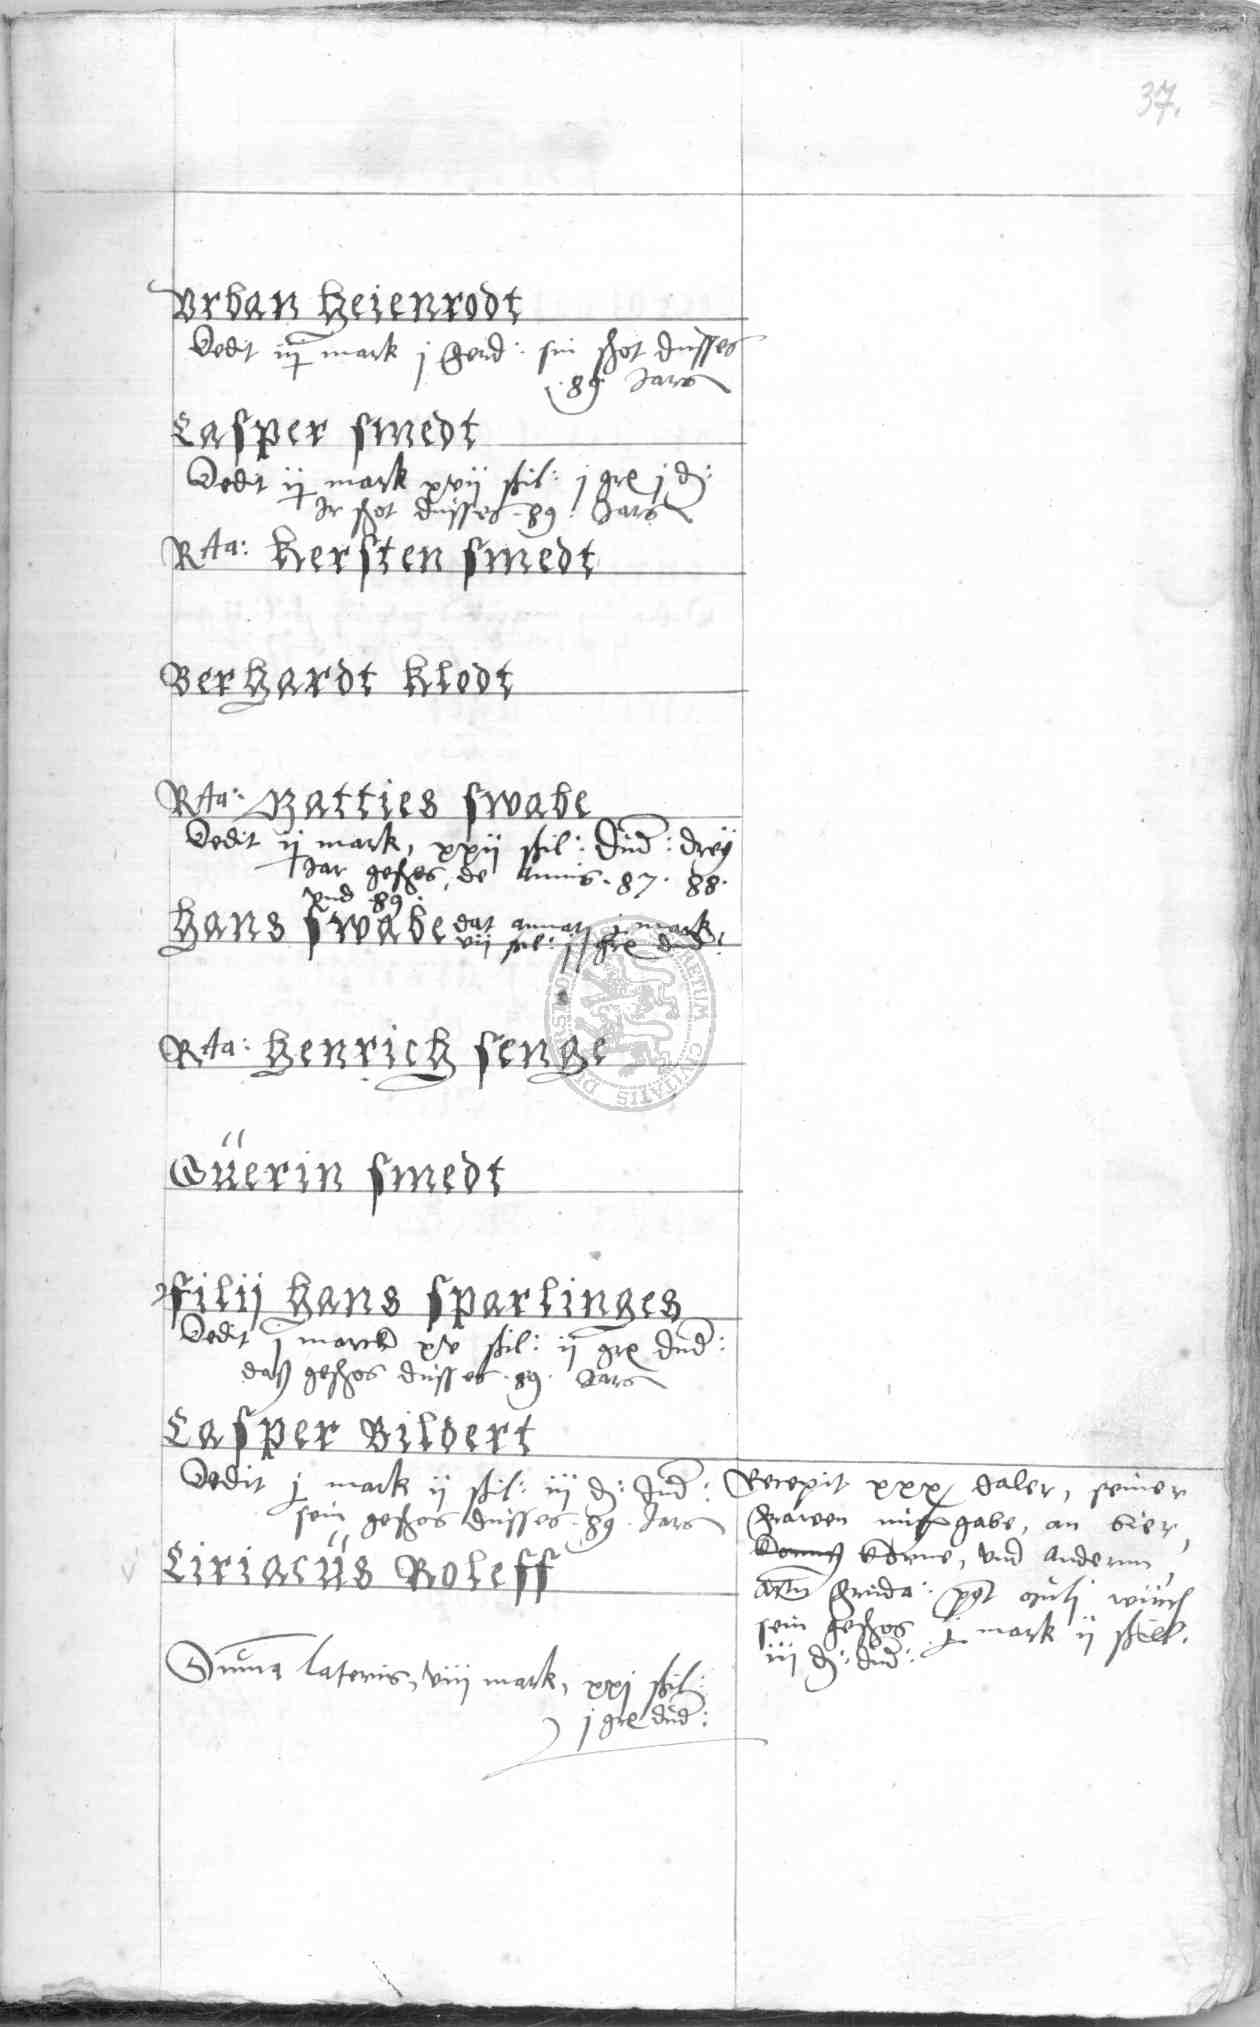 37.
Urban Heienrodt
Dedit iij mark j ferd: sin schot dusses
.89 Jars
Casper Smedt
Dedit ij mark xvij schil: j gre j d:
Ir schot dusses .89. Jars
Rta: Kersten Smedt
Berhardt Klodt
Rta: Matties Swabe
Dedit ij mark, xxij schil: dud: drey
Jar geschos, de Annis .87. 88.
vnd 89.
Hans Swabe dat annat j mark
vij schil: j gre dud:
Rta: Henrich Senge
Güerin Smedt
Filij Hans Sparlinges
Dedit j marck xv schil: ij gre dud:
daß geschos dusses .89. Jars
Casper Bildert
Dedit j mark ij schil: iij d: dud:
sein geschos dusses .89. Jars
Ciriacüs Roleff
Suma lateris, viij mark, xxj schil:
j gre dud:
Recepit xxx daler, seiner
frawen mitgabe, an bier,
korne, vnd anderm,
sein geschos j mark ij schil.
iij d: dud:
SECRETUM CIVITATIS